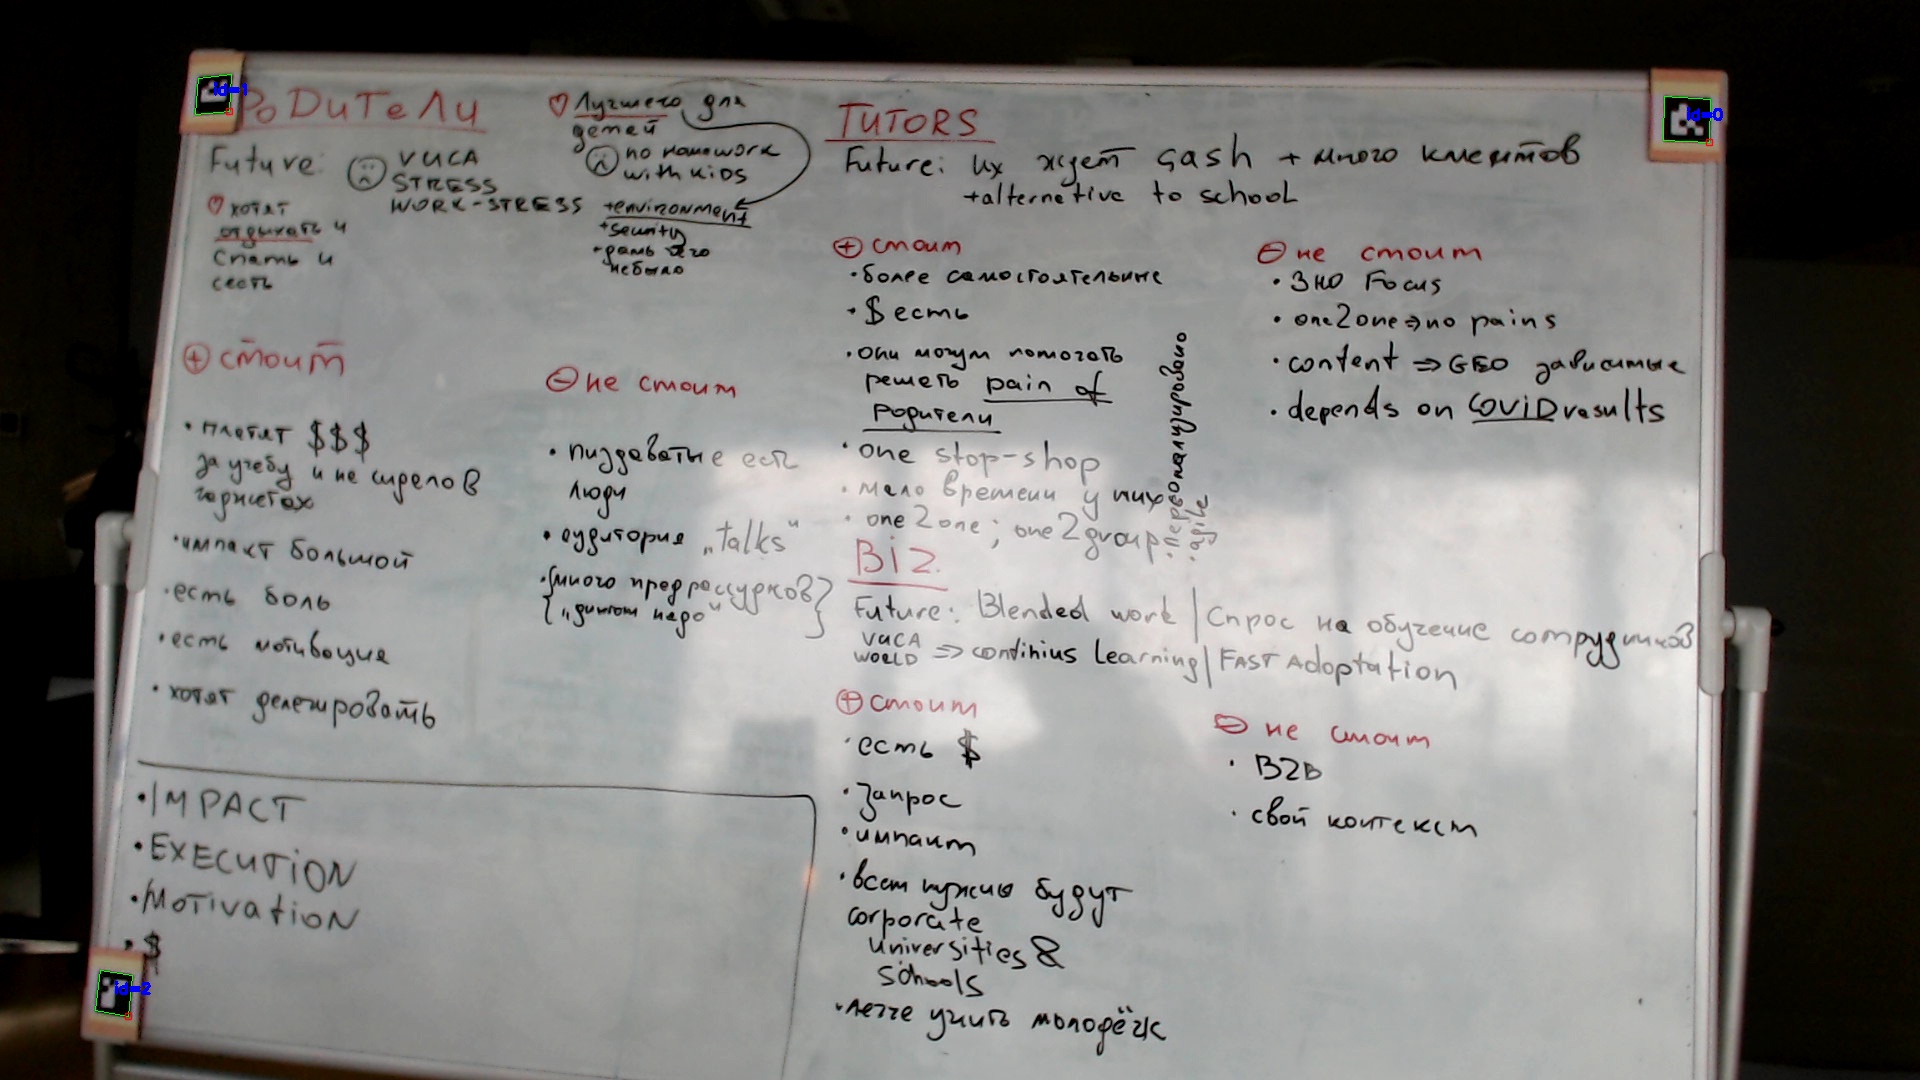 РОДИТЕЛИ
Future:
VUCA
STRESS
WORK-STRESS
♡ хотят
отдыхать и
спать и
сесть
♡ Лучшего для
детей
no homework
with kids
+environment
+security
небыло
⊕ стоит
• платят $$$
за учебу и не
• импакт большой
• есть боль
• есть мотивация
• хотят делегировать
⊖ не стоит
• пиздаватые есть
люди
• аудитория „talks"
• {много предрассудков}
{„диплом надо"
• IMPACT
• EXECUTION
• MOTIVATION
• $
TUTORS
Future: их ждет cash + много клиентов
+alternative to school
⊕ стоит
• более самостоятельные
• $ есть
• они могут помогать
решать pain of
родители
• one stop-shop
• мало времени у них
• one2one; one2group
• персонализировано
• agile
⊖ не стоит
• ЗНО Focus
• one2one ⇒ no pains
• content ⇒ GEO зависимые
• depends on COViD results
Biz.
Future: Blended work | Спрос на обучение сотрудников
VUCA
WORLD ⇒ continius Learning | FAST Adoptation
⊕ стоит
• есть $
• Запрос
• импакт
• всем нужны будут
corporate
universities &
schools
• легче учить молодёж
⊖ не стоит
• B2B
• свой контекст
id=1
id=0
id=2